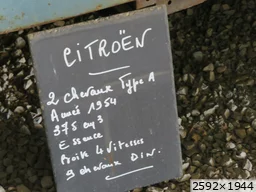 CITROËN
2 chevaux Type A
Année 1954
375 cm3
Essence
Boite 4 Vitesses
9 chevaux DIN.
2592×1944